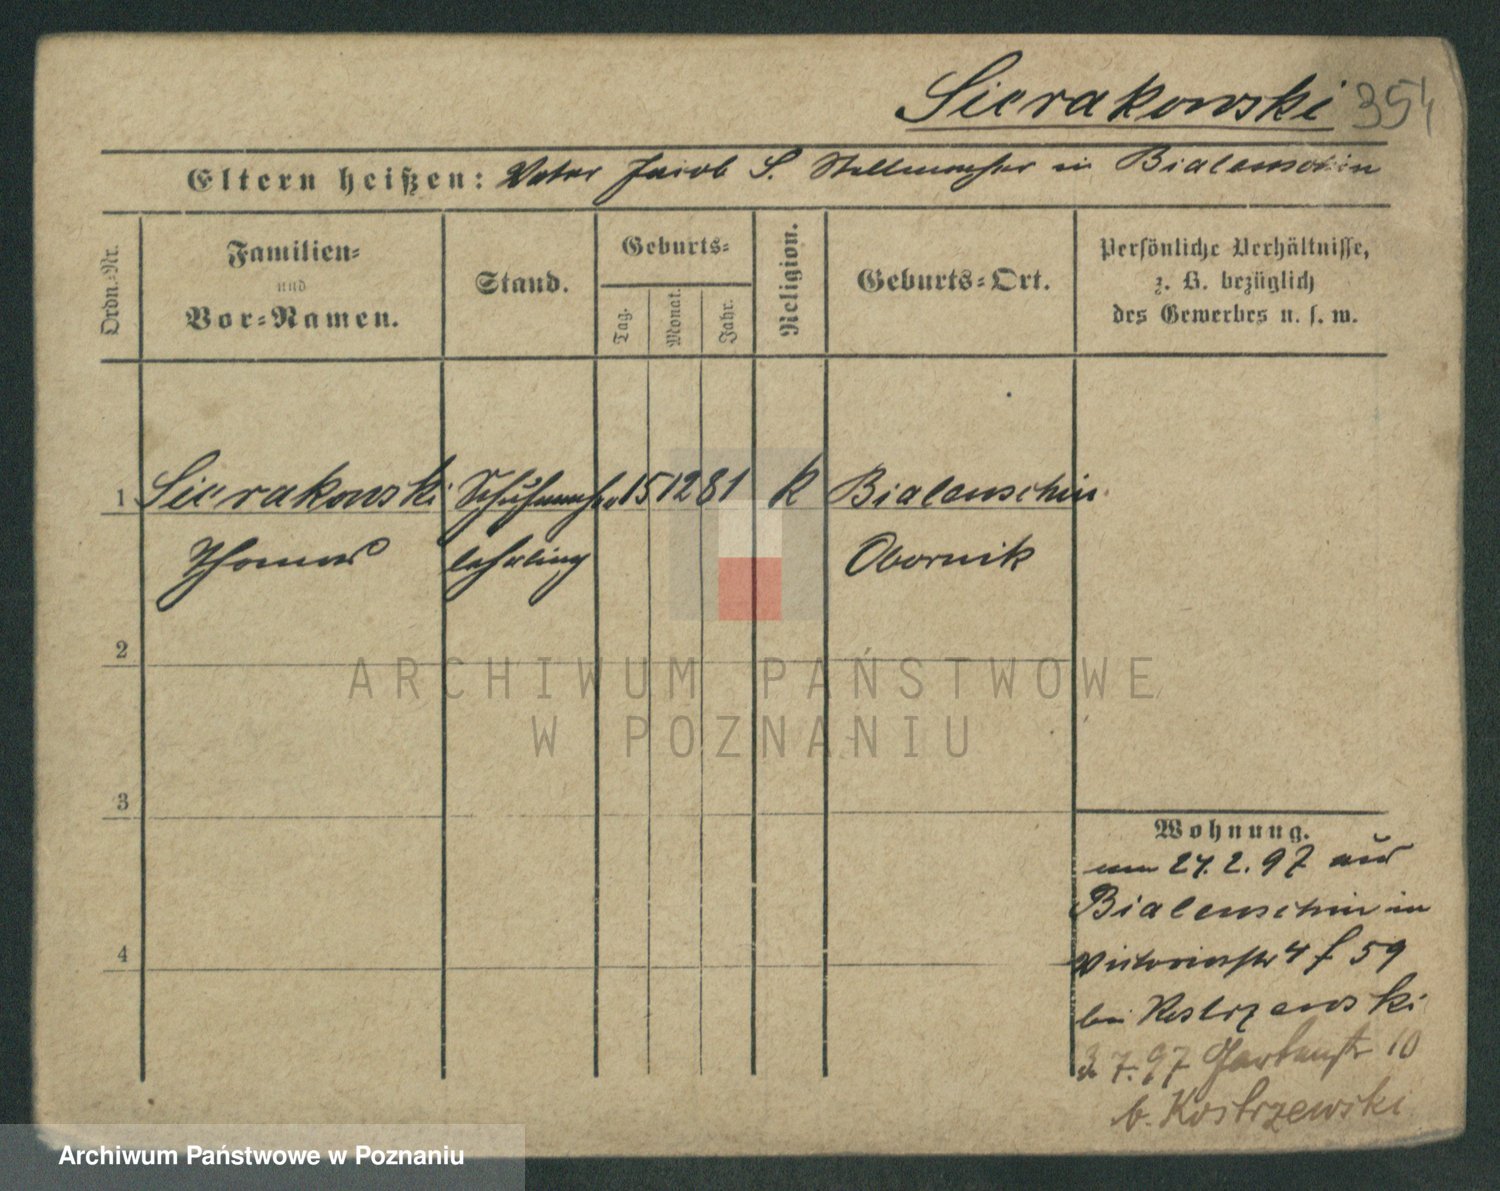 Sierakowski 354
Eltern heißen: Vater Jacob S. Stellmacher in Bialenschin
Ordn.-Nr.
Familien-
und
Vor-Namen.
Stand.
Geburts-
Tag.
Monat.
Jahr.
Religion.
Geburts-Ort.
Persönliche Verhältnisse,
z. B. bezüglich
des Gewerbes u. s. w.
1 Sierakowski Schuhmacher 15 12 81 k Bialenschin
Thomas lehrling Obornik
2
3
4
Wohnung.
am 24. 2. 97 aus
Bialenschin in
Victoriastr 4 f 59
bei Kostrzewski
3 7. 97 Gartenstr 10
b. Kostrzewski
ARCHIWUM PAŃSTWOWE
W POZNANIU
Archiwum Państwowe w Poznaniu